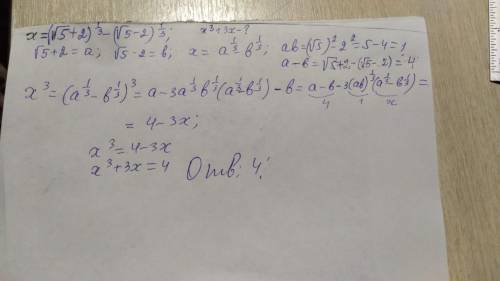 x = (√5+2)^{1/3} - (√5-2)^{1/3}; x³+3x-?
√5+2=a; √5-2=b; x = a^{1/3} - b^{1/3} ab=(√5)²-2²=5-4=1;
a-b=√5+2-(√5-2)=4
x³=(a^{1/3}-b^{1/3})³=a-3a^{1/3}b^{1/3}(a^{1/3}-b^{1/3})-b=a-b-3(ab)^{1/3}(a^{1/3}-b^{1/3})=
4 1 x
=4-3x;
x³=4-3x
x³+3x=4 Отв: 4.